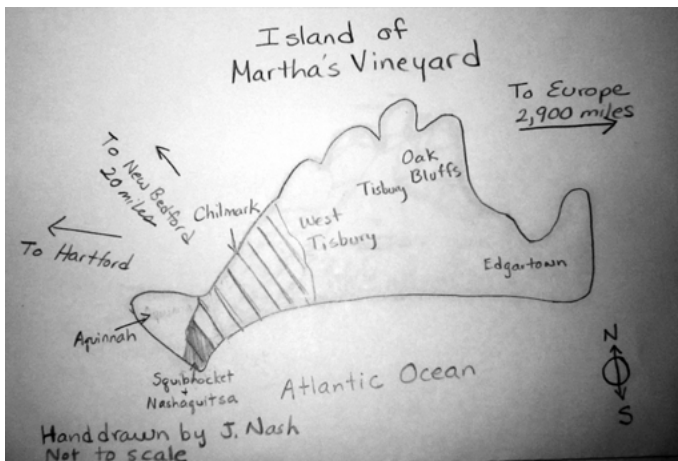 Island of
Martha's Vineyard
To Europe
2,900 miles
To New Bedford
20 miles
Oak
Bluffs
Tisbury
Chilmark
West
Tisbury
To Hartford
Edgartown
Aquinnah
N
S
Squibnocket
+
Nashaquitsa
Atlantic Ocean
Handdrawn by J. Nash
Not to scale